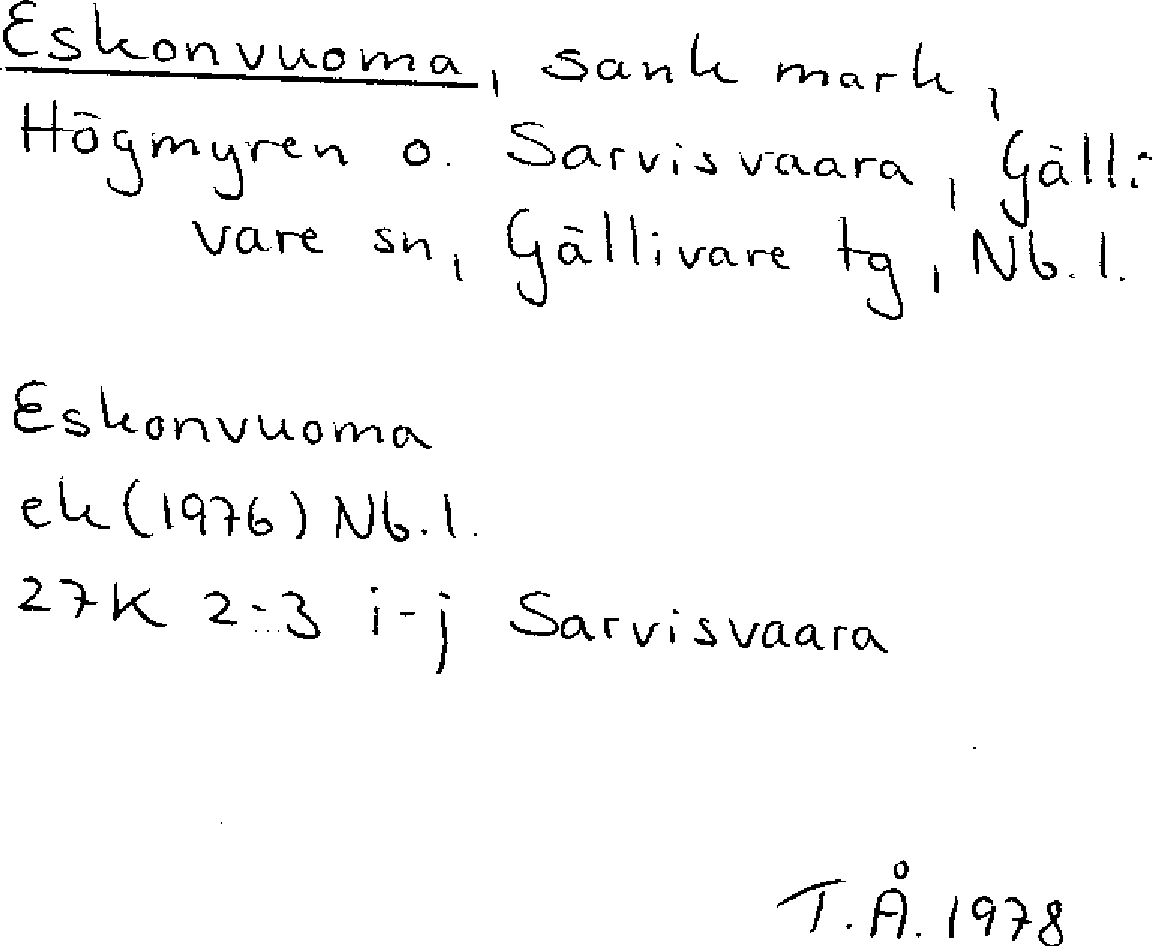 Eskonvuoma, sank mark,
Högmyren o. Sarvisvaara, Gälli-
vare sn, Gällivare tg, Nb. l.
Eskonvuoma
ek (1976) Nb. l.
27K 2-3 i-j Sarvisvaara
T. Å. 1978